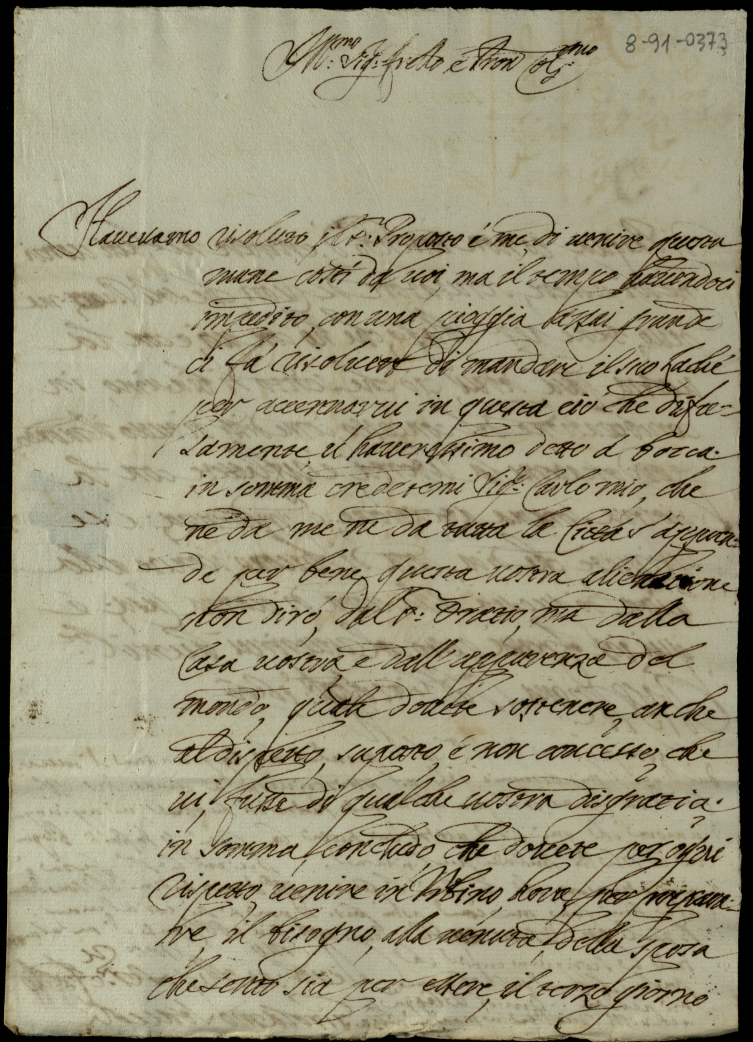 8-91-0373
M.^to Sig.^r fr̃ello e Pron Oss.^mo
Havevamo risoluto, il S.^r Proposto é me, di venire questa
mane costí da voi, ma il tempo havendoci
impedito, con una pioggia assai grande
ci fá risolvere di mandare il suo Laché
per accennarvi in questa ció che diste-
samente, vi haveressimo detto á bocca.
in somma credetemi Sig.^r Carlo mio, che
ne da me ne da tutta la Cittá s'appren-
de per bene, questa vostra alienatione
non diró, dal S.^r Oratio, ma dalla
Casa vostra, e dall'apparenza del
mondo, quale dovete sostenere, anche
al dispetto, suposto é non concesso, che
vi fusse di qualche vostra disgratia.
in somma, concludo, che dovete per ogni
rispetto, venire in Urbino, hora, per prepara-
re, il bisogno, alla venuta, della sposa
che sento sia per essere, il terzo giorno